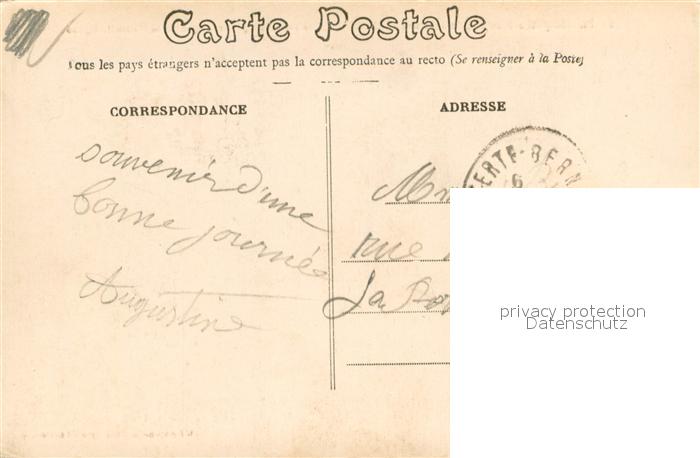 Carte Postale
Tous les pays étrangers n'acceptent pas la correspondance au recto (Se renseigner à la Poste)
CORRESPONDANCE
ADRESSE
FERTÉ-BERN
6
souvenir d'une
bonne journée
Augustine
rue
La
privacy protection
Datenschutz